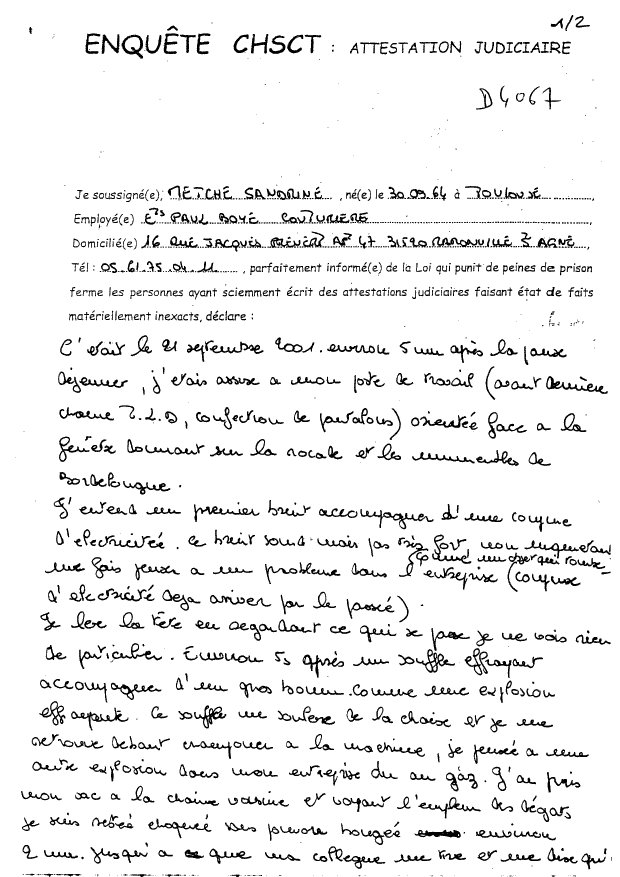 1/2
ENQUÊTE CHSCT : ATTESTATION JUDICIAIRE
D4067
Je soussigné(e), METCHE SANDRINE , né(e) le 30.09.64 à TOULOUSE ,
Employé(e) Ets PAUL BOYE COUTURIERE
Domicilié(e) 16 RUE JACQUES PREVERT AP 47 31520 RAMONVILLE St AGNE ,
Tél : 05.61.75.04.11 , parfaitement informé(e) de la Loi qui punit de peines de prison
ferme les personnes ayant sciemment écrit des attestations judiciaires faisant état de faits
matériellement inexacts, déclare :
C'était le 21 septembre 2001. environ 5 mn après la pause
dejeuner, j'etais assise a mon poste de travail (avant dernière
chaine Z.L.D, confection de pantalons) orientée face a la
fenêtre donnant sur la rocade et les immeubles de
Bordelongue.
J'entend un premier bruit accompagner d'une coupure
d'electricitée. ce bruit sourd mais pas très fort, non inquietant
comme un avion qui
me fais penser a un probleme dans l'entreprise (coupure
d'electricité deja arriver par le passé).
Je leve la tête en regardant ce qui se passe je ne vois rien
de particulier. Environ 5s après un souffle effrayant
accompagner d'un gros boum. comme une explosion
Ce souffle me souleve de la chaise et je me
retrouve debout cramponer a la machine, je pensée a une
autre explosion dans mon entreprise du au gàz. J'ai pris
mon sac a la chaine voisine et voyant l'empleur des dégats
je suis restée choquée sans pouvoir bougée environ
2 mn. Jusqu'a ce que ma collegue me tire et me dise qu'